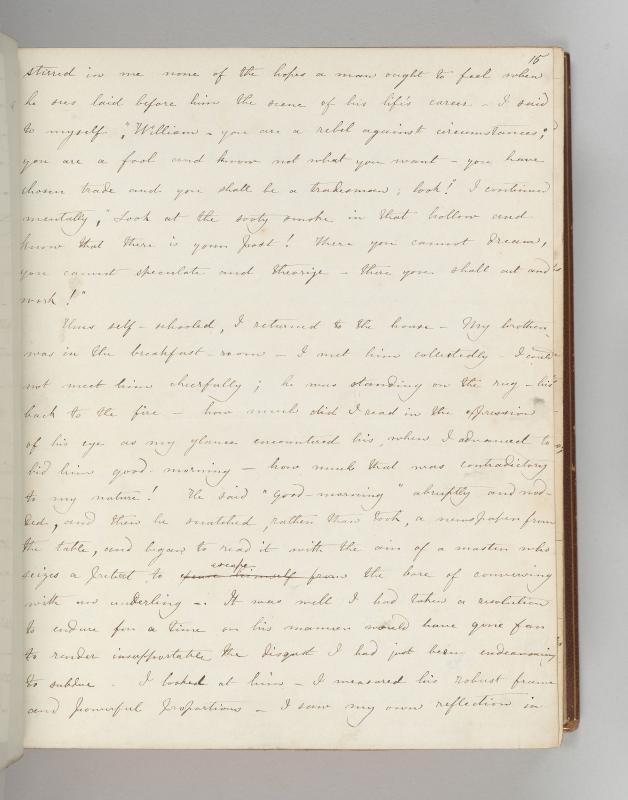 15
stirred in me none of the hopes a man ought to feel when
he sees laid before him the scene of his life's career – I said
to myself, "William – you are a rebel against circumstances;
you are a fool and know not what you want – you have
chosen trade and you shall be a tradesman; look!" I continued
mentally, "Look at the sooty smoke in that hollow and
know that there is your post! There you cannot dream,
you cannot speculate and theorize – there you shall act and
work!"
Thus self-schooled, I returned to the house – My brother
was in the breakfast-room – I met him collectedly – I could
not meet him cheerfully; he was standing on the rug – his
back to the fire – how much did I read in the expression
of his eye as my glance encountered his, when I advanced to
bid him good-morning – how much that was contradictory
to my nature! He said "Good-morning" abruptly and nod-
ded, and then he snatched, rather than took, a newspaper from
the table, and began to read it with the air of a master who
seizes a pretext to escape the bore of conversing
with an underling –. It was well I had taken a resolution
to endure for a time or his manner would have gone far
to render insupportable the disgust I had just been endeavouring
to subdue. I looked at him – I measured his robust frame
and powerful proportions – I saw my own reflection in